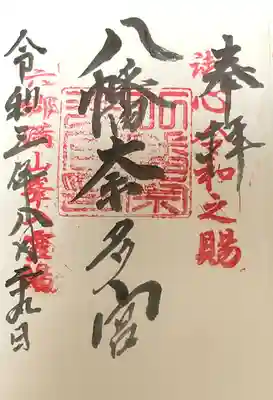 奉拝
誠心令和之賜
八幡奈多宮
六郷満山霊場
令和三年八月十九日